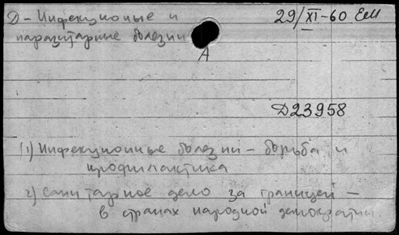 Д - Инфекционые и 29/XI-60 ЕМ
паразитарные болезни
А
Д23958
1) Инфекционные болезни - борьба и
профилактика
2) Санитарное дело за границей -
в странах народной демократии.